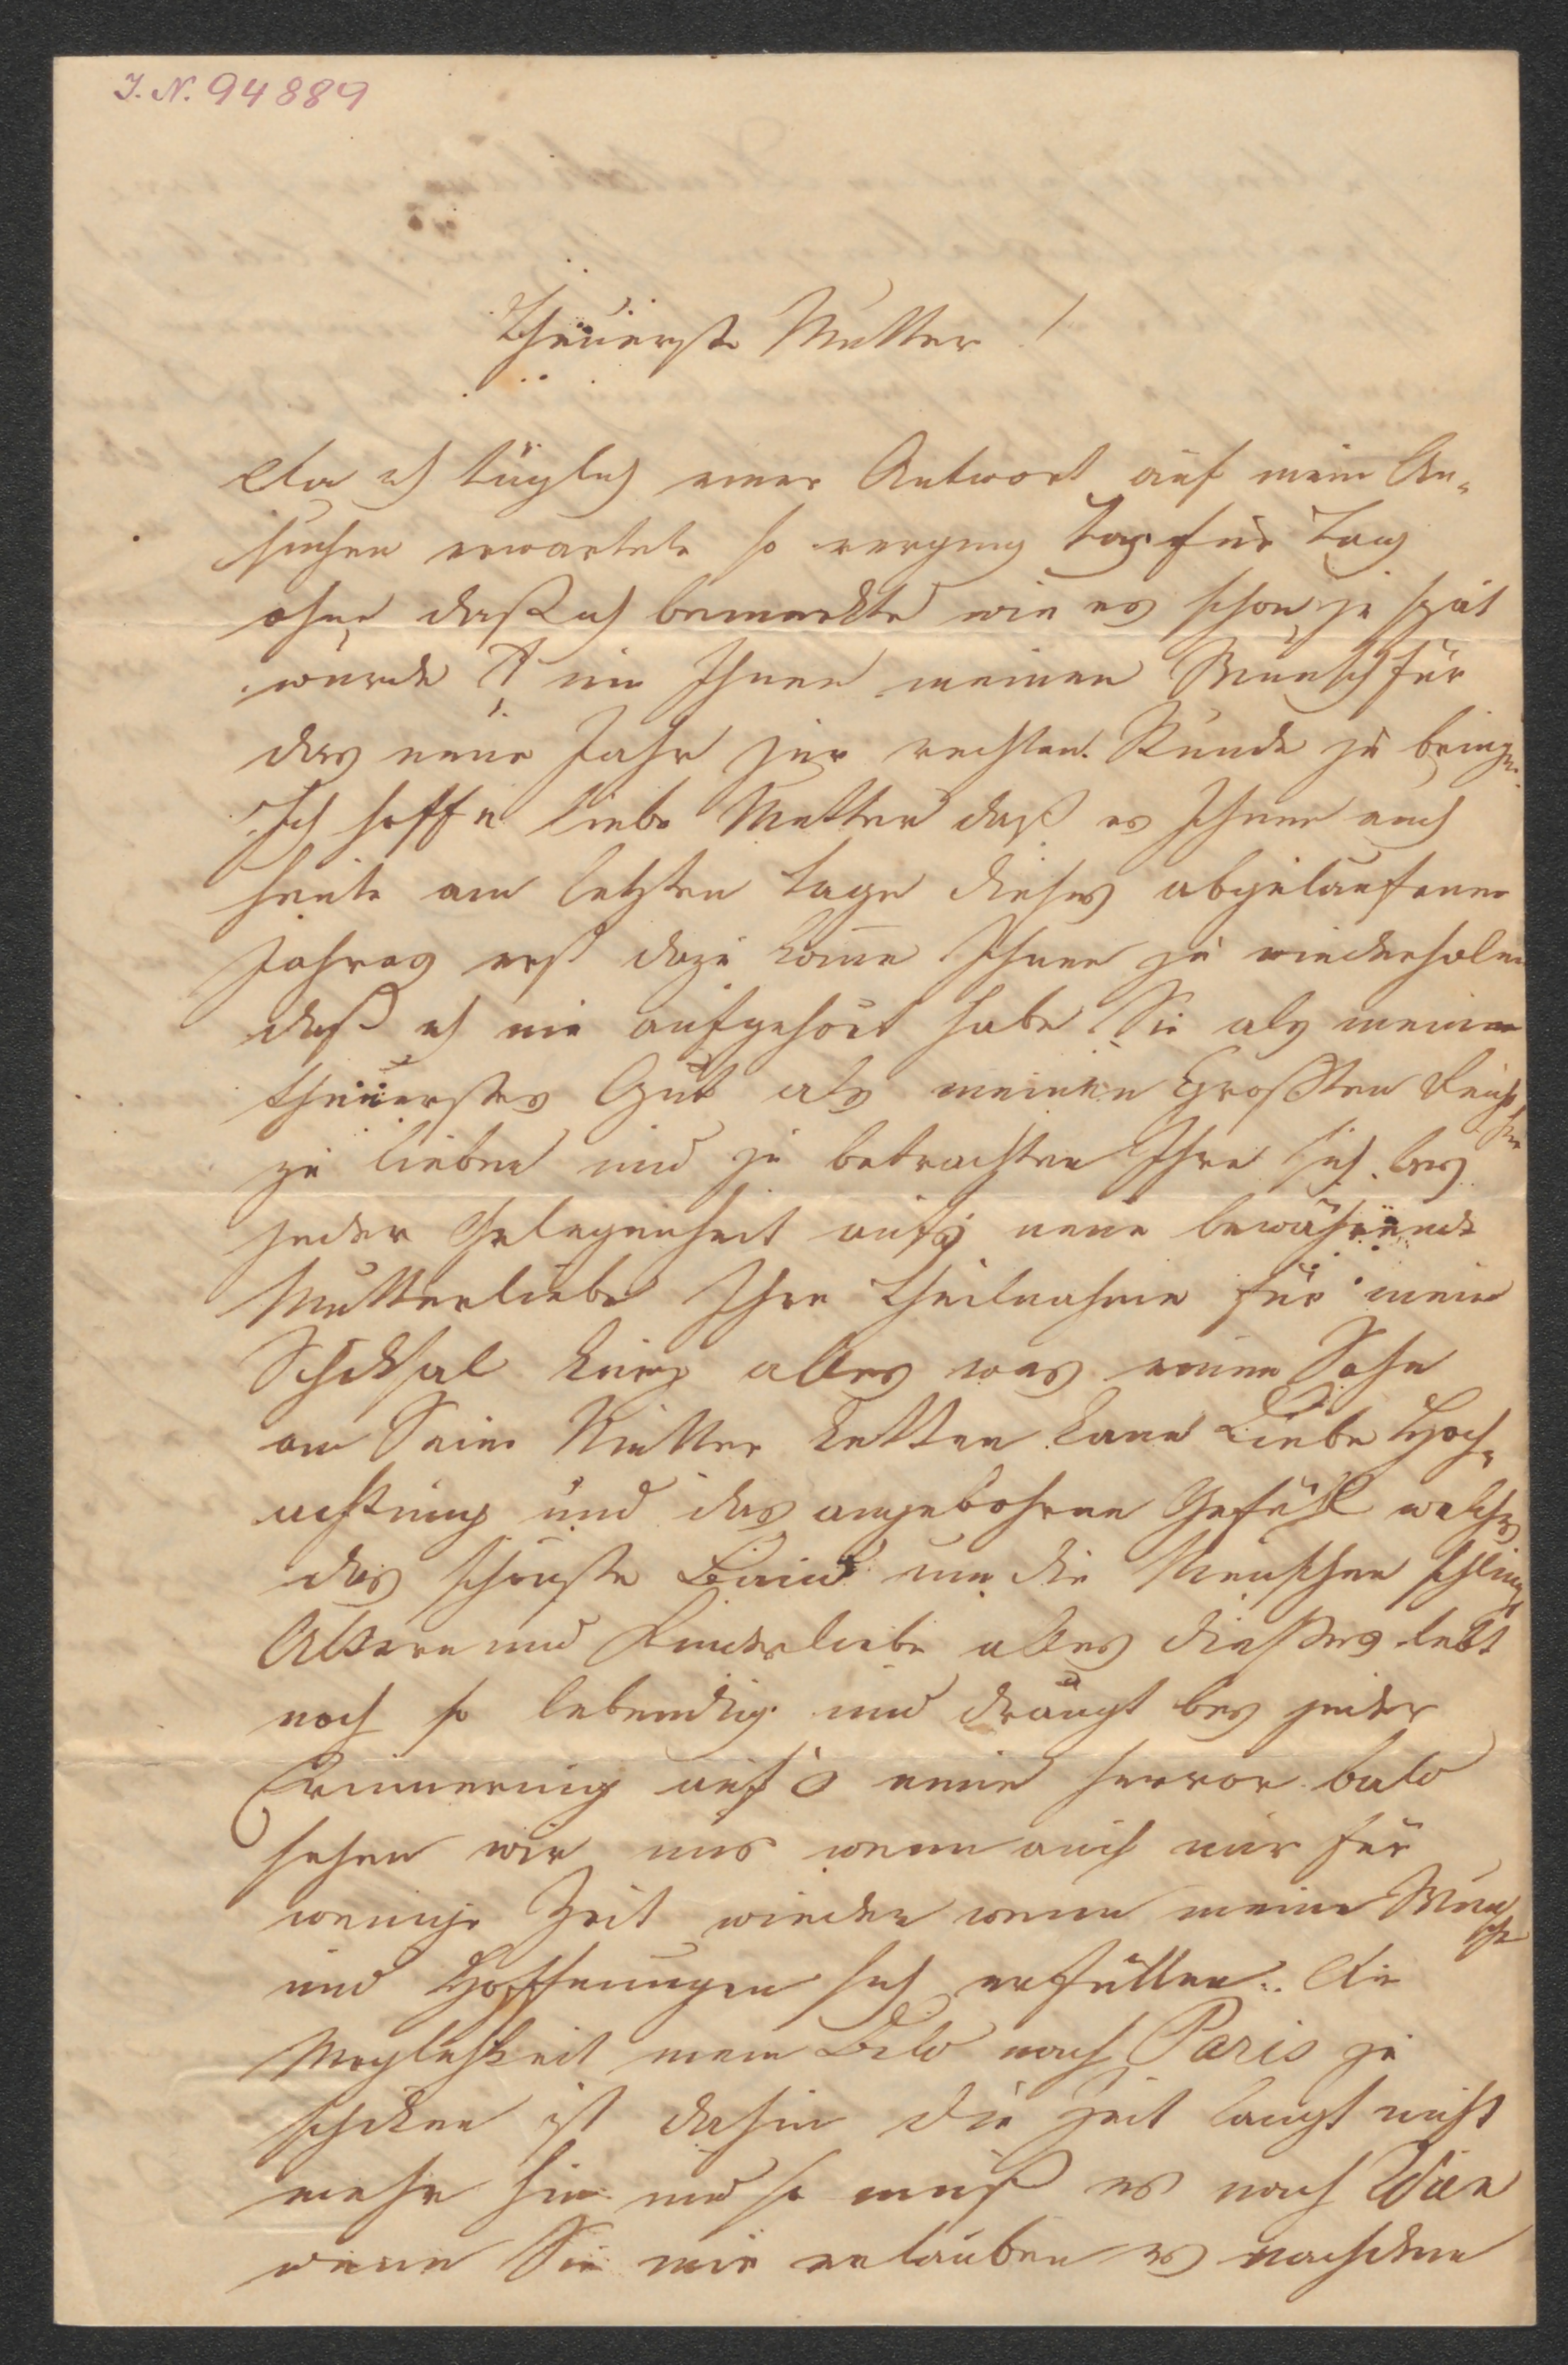 I. N. 94889
Theuerste Mutter!
Da ich täglich einer Antwort auf mein An-
suchen erwartete so verging Tag für Tag
ohne daß ich bemerkte wie es schon zu spät
wurde um Ihnen meinen Wunsch für
das neue Jahr zur rechten Stunde zu bringen.
Ich hoffe liebe Mutter daß es Ihnen auch
heute am letzten Tage dieses abgelaufenen
Jahres erst dazu komme Ihnen zu wiederholen
daß ich nie aufgehört habe Sie als meine
theuerstes Gut als meinen Großten Reich-
thum
zu lieben und zu betrachten Ihre sich bey
jeder Gelegenheit aufs neue bewährende
Mutterliebe Ihre Theilnahme für mein
Schicksal kurz alles was einen Sohn
an Seine Mutter ketten kann Liebe Hoch-
achtung und das angebohrne Gefühl welches
das schönste Band um die Menschen schlingt
Ältern und Kinderliebe alles dießes lebt
noch so lebendig und drängt bey jeder
Erinnerung aufs neue hervor bald
sehen wir uns wenn auch nur für
wenige Zeit wieder wenn meine Wün
sche
und Hoffnungen sich erfüllen. Die
Moglichkeit mein Bild nach Paris zu
schicken ist dahin die Zeit langt nicht
mehr hin und so muß es nach Wien
wenn Sie mir erlauben es nachdem